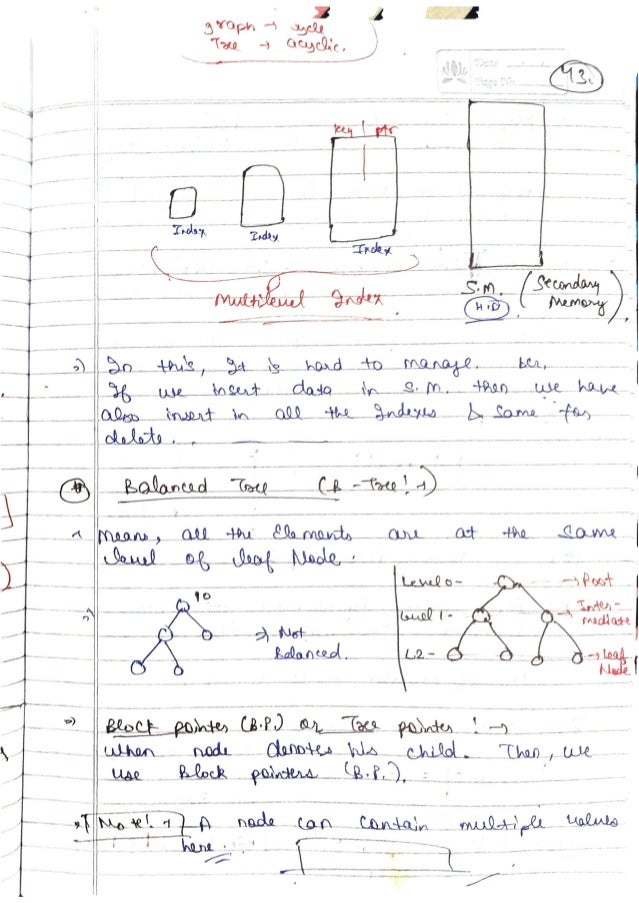 graph → cycle
Tree → acyclic.
Date
Page No.
43.
key | ptr
Index
Index
Index
Multilevel Index
S.M. (Secondary Memory)
H.D
⇒) In this, It is hard to manage. bcz,
If we insert data in S.M. then we have
also insert in all the Indexes & same for
delete.
Balanced Tree (B-Tree! →)
Means, all the Elements are at the same
level of leaf Node.
10
⇒ Not
Balanced.
Level 0 - → Root
Level 1 - → Inter-
mediate
L2 - → Leaf
Node
⇒) Block pointer (B.P.) or Tree pointer ! →
When node denotes his child. Then, we
use Block pointers (B.P.).
Note! → A node can contain multiple values
here.